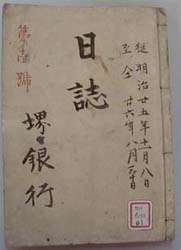 従明治廿五年十一月八日
至仝 廿六年八月三十日
日誌
堺銀行